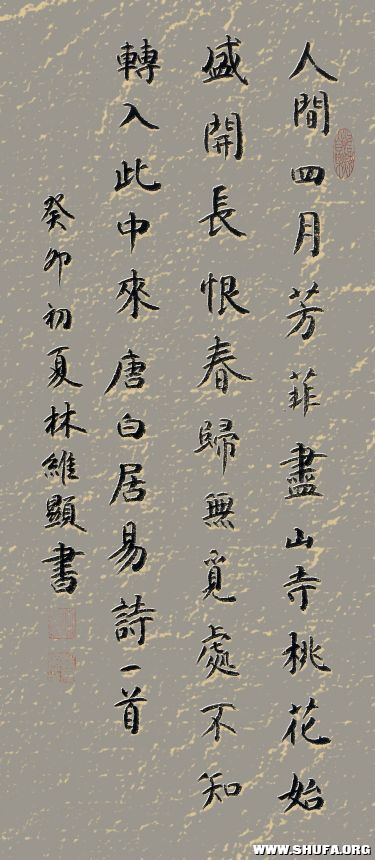 人間四月芳菲盡山寺桃花始
盛開長恨春歸無覓處不知
轉入此中來唐白居易詩一首
癸卯初夏林維顯書
WWW.SHUFA.ORG